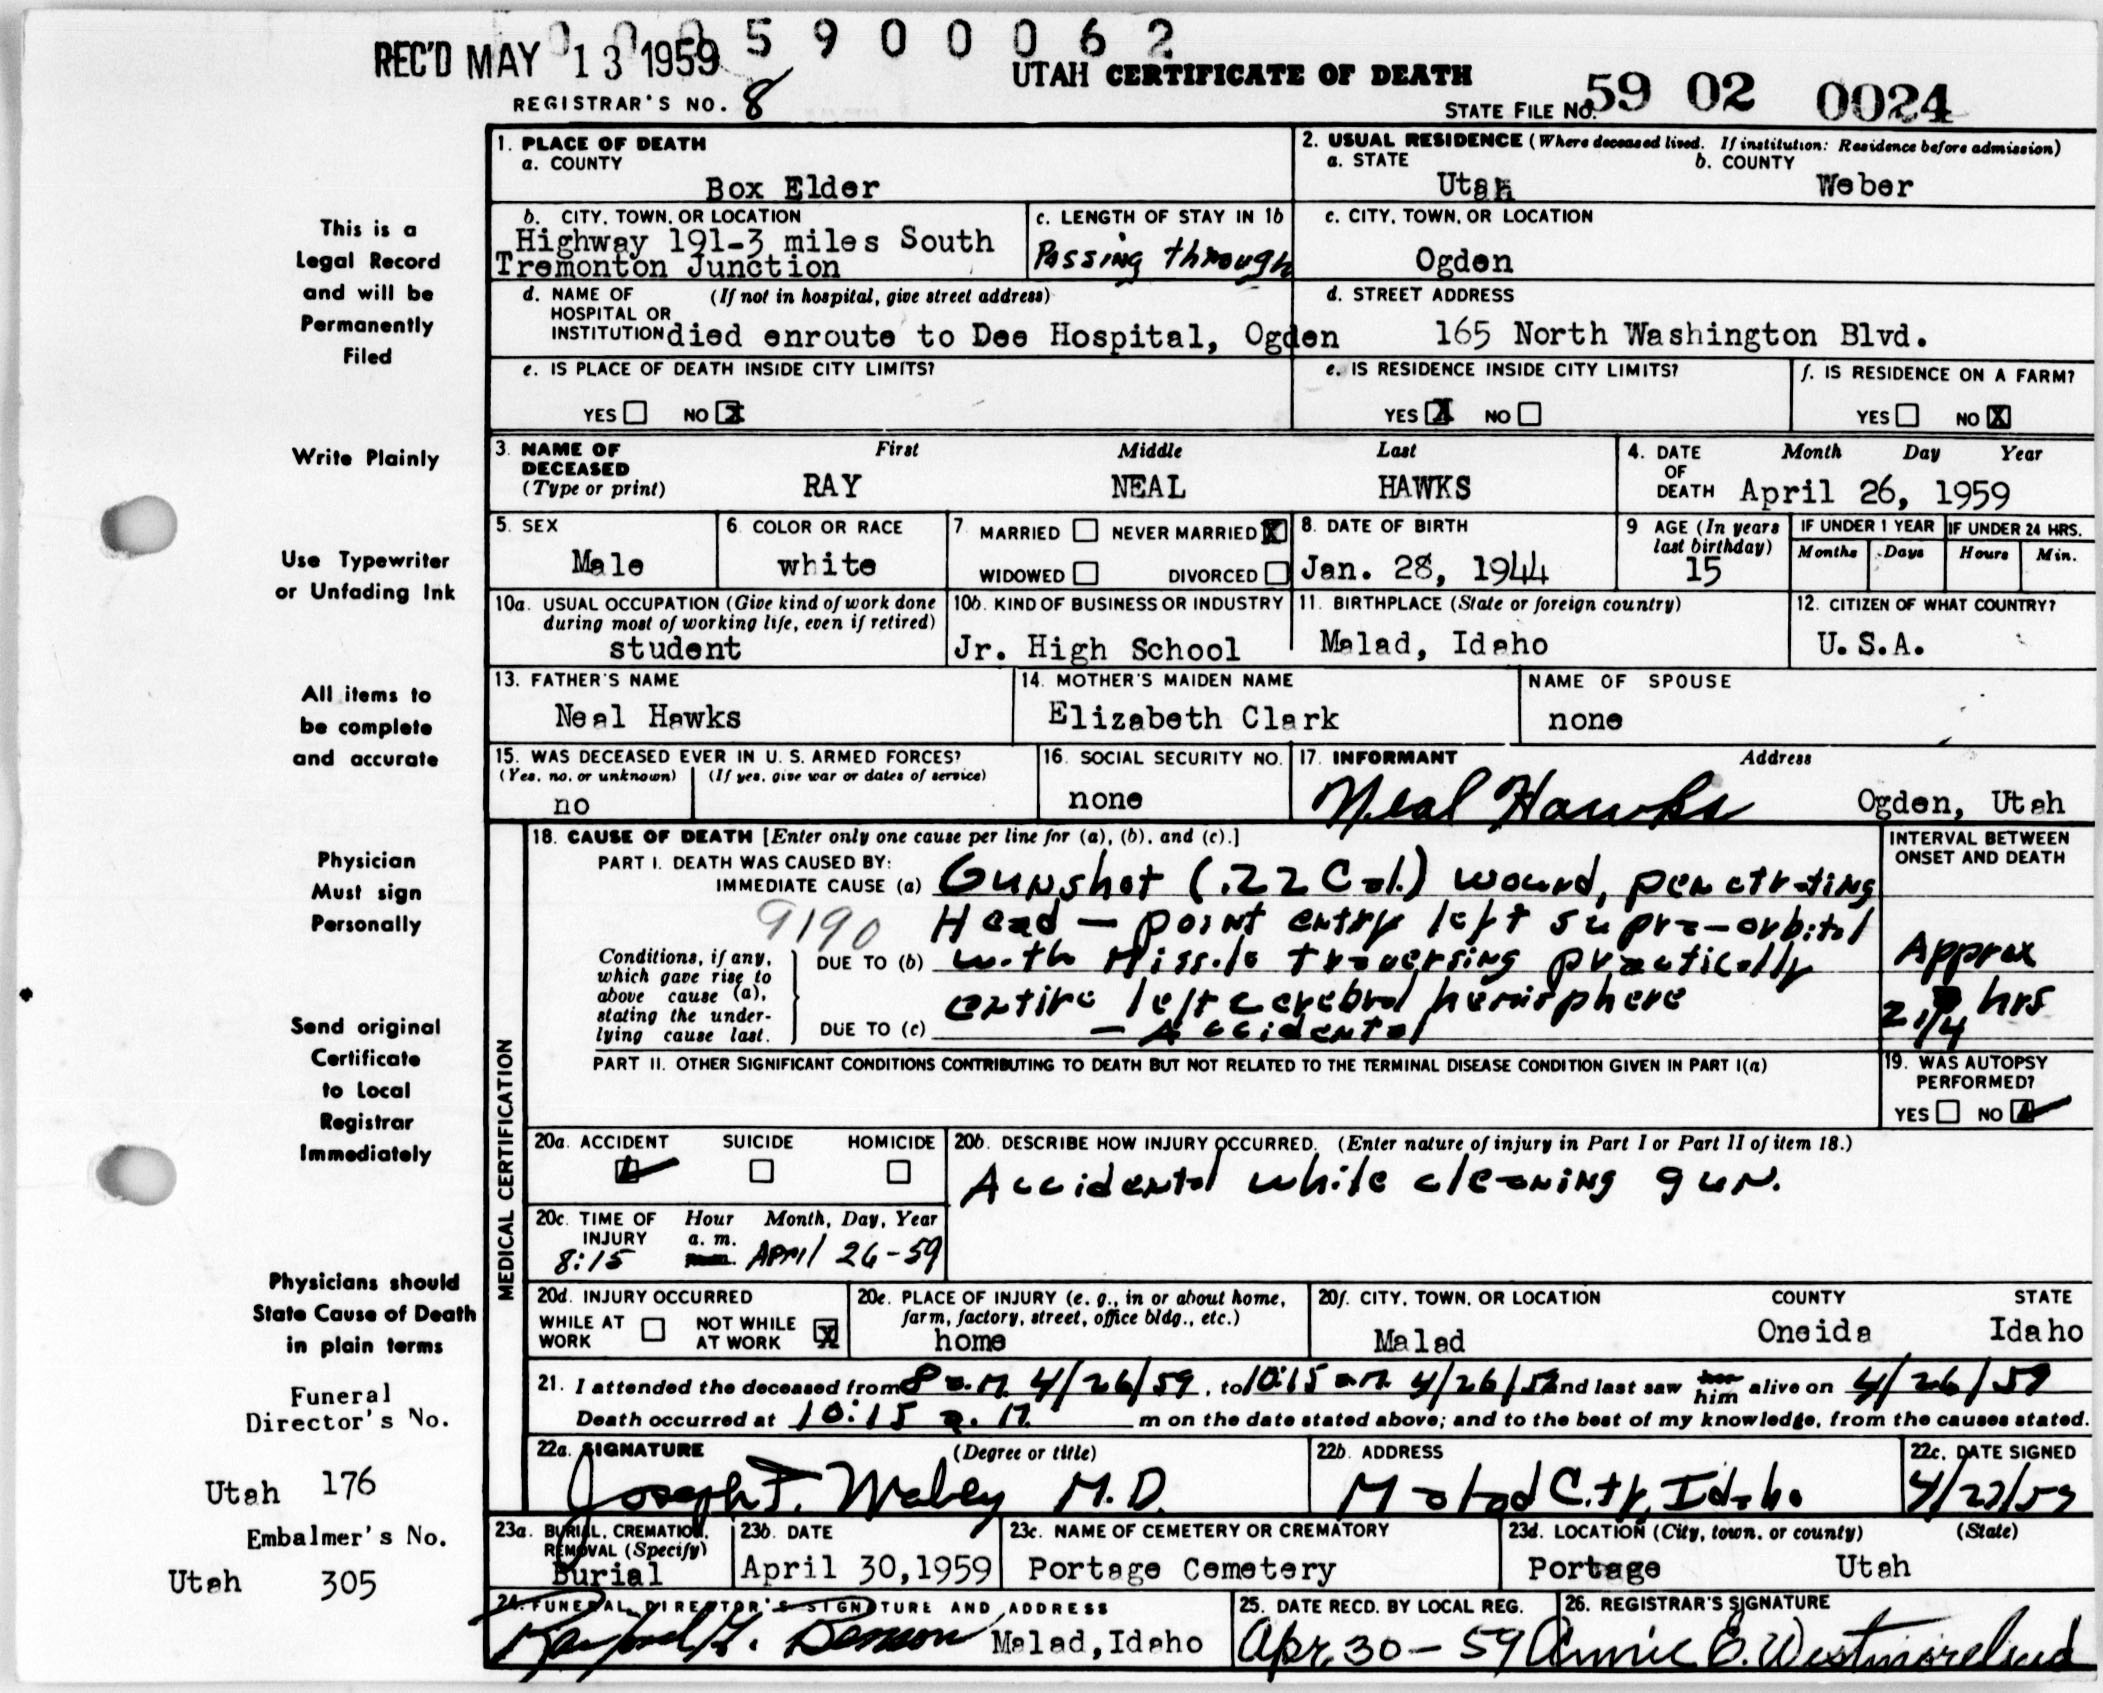 0 0 0 5 9 0 0 0 6 2
REC'D MAY 13 1959
UTAH CERTIFICATE OF DEATH
REGISTRAR'S NO. 8
STATE FILE NO. 59 02 0024
1. PLACE OF DEATH
a. COUNTY
Box Elder
2. USUAL RESIDENCE (Where deceased lived. If institution: Residence before admission)
a. STATE b. COUNTY
Utah Weber
b. CITY, TOWN, OR LOCATION
Highway 191-3 miles South
Tremonton Junction
c. LENGTH OF STAY IN 1b
Passing through
c. CITY, TOWN, OR LOCATION
Ogden
d. NAME OF (If not in hospital, give street address)
HOSPITAL OR
INSTITUTION died enroute to Dee Hospital, Ogden
d. STREET ADDRESS
165 North Washington Blvd.
e. IS PLACE OF DEATH INSIDE CITY LIMITS?
YES NO X
e. IS RESIDENCE INSIDE CITY LIMITS?
YES X NO
f. IS RESIDENCE ON A FARM?
YES NO X
3. NAME OF DECEASED (Type or print)
First Middle Last
RAY NEAL HAWKS
4. DATE OF DEATH
Month Day Year
April 26, 1959
5. SEX
Male
6. COLOR OR RACE
white
7. MARRIED NEVER MARRIED X
WIDOWED DIVORCED
8. DATE OF BIRTH
Jan. 28, 1944
9 AGE (In years last birthday)
15
IF UNDER 1 YEAR
Months Days
IF UNDER 24 HRS.
Hours Min.
10a. USUAL OCCUPATION (Give kind of work done
during most of working life, even if retired)
student
10b. KIND OF BUSINESS OR INDUSTRY
Jr. High School
11. BIRTHPLACE (State or foreign country)
Malad, Idaho
12. CITIZEN OF WHAT COUNTRY?
U.S.A.
13. FATHER'S NAME
Neal Hawks
14. MOTHER'S MAIDEN NAME
Elizabeth Clark
NAME OF SPOUSE
none
15. WAS DECEASED EVER IN U. S. ARMED FORCES?
(Yes, no, or unknown) (If yes, give war or dates of service)
no
16. SOCIAL SECURITY NO.
none
17. INFORMANT Address
Neal Hawks Ogden, Utah
MEDICAL CERTIFICATION
18. CAUSE OF DEATH [Enter only one cause per line for (a), (b), and (c).]
PART I. DEATH WAS CAUSED BY:
IMMEDIATE CAUSE (a) Gunshot (.22 Cal.) wound, penetrating
9190
Head — point entry left supra-orbital
Conditions, if any,
which gave rise to
above cause (a),
stating the under-
lying cause last.
DUE TO (b) with Missile traversing practically
entire left cerebral hemisphere
DUE TO (c) — Accidental
INTERVAL BETWEEN
ONSET AND DEATH
Approx
2 1/4 hrs
PART II. OTHER SIGNIFICANT CONDITIONS CONTRIBUTING TO DEATH BUT NOT RELATED TO THE TERMINAL DISEASE CONDITION GIVEN IN PART I(a)
19. WAS AUTOPSY
PERFORMED?
YES NO
20a. ACCIDENT SUICIDE HOMICIDE
20b. DESCRIBE HOW INJURY OCCURRED. (Enter nature of injury in Part I or Part II of item 18.)
Accidental while cleaning gun.
20c. TIME OF Hour Month, Day, Year
INJURY a. m.
8:15 p.m. April 26-59
20d. INJURY OCCURRED
WHILE AT WORK NOT WHILE AT WORK X
20e. PLACE OF INJURY (e. g., in or about home,
farm, factory, street, office bldg., etc.)
home
20f. CITY, TOWN, OR LOCATION COUNTY STATE
Malad Oneida Idaho
21. I attended the deceased from 8 a.m. 4/26/59, to 10:15 a.m. 4/26/59 and last saw her him alive on 4/26/59
Death occurred at 10:15 a. m. m on the date stated above; and to the best of my knowledge, from the causes stated.
22a. SIGNATURE (Degree or title)
Joseph F. Wabey M.D.
22b. ADDRESS
Malad City, Idaho
22c. DATE SIGNED
4/27/59
23a. BURIAL, CREMATION,
REMOVAL (Specify)
Burial
23b. DATE
April 30,1959
23c. NAME OF CEMETERY OR CREMATORY
Portage Cemetery
23d. LOCATION (City, town, or county) (State)
Portage Utah
24. FUNERAL DIRECTOR'S SIGNATURE AND ADDRESS
Benson Malad, Idaho
25. DATE RECD. BY LOCAL REG.
Apr. 30-59
26. REGISTRAR'S SIGNATURE
Annie C. Westmoreland
This is a
Legal Record
and will be
Permanently
Filed
Write Plainly
Use Typewriter
or Unfading Ink
All items to
be complete
and accurate
Physician
Must sign
Personally
Send original
Certificate
to Local
Registrar
Immediately
Physicians should
State Cause of Death
in plain terms
Funeral
Director's No.
Utah 176
Embalmer's No.
Utah 305